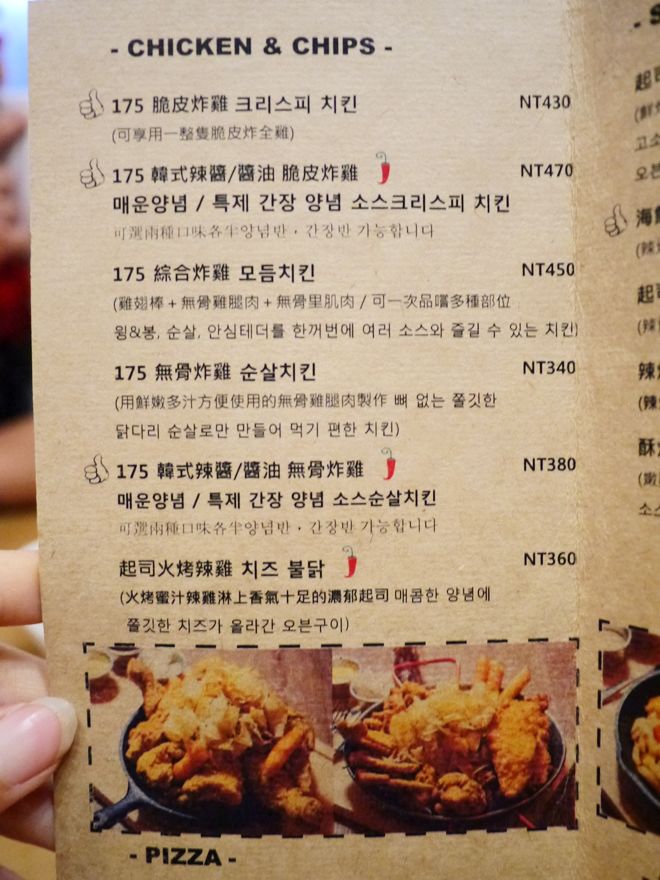 - CHICKEN & CHIPS -
175 脆皮炸雞 크리스피 치킨 NT430
(可享用一整隻脆皮炸全雞)
175 韓式辣醬/醬油 脆皮炸雞 NT470
매운양념 / 특제 간장 양념 소스크리스피 치킨
可選兩種口味各半양념반，간장반 가능합니다
175 綜合炸雞 모듬치킨 NT450
(雞翅棒 + 無骨雞腿肉 + 無骨里肌肉 / 可一次品嚐多種部位
윙&봉, 순살, 안심테더를 한꺼번에 여러 소스와 즐길 수 있는 치킨)
175 無骨炸雞 순살치킨 NT340
(用鮮嫩多汁方便使用的無骨雞腿肉製作 뼈 없는 쫄깃한
닭다리 순살로만 만들어 먹기 편한 치킨)
175 韓式辣醬/醬油 無骨炸雞 NT380
매운양념 / 특제 간장 양념 소스순살치킨
可選兩種口味各半양념반，간장반 가능합니다
起司火烤辣雞 치즈 불닭 NT360
(火烤蜜汁辣雞淋上香氣十足的濃郁起司 매콤한 양념에
쫄깃한 치즈가 올라간 오븐구이)
- PIZZA -
起司
고소
오븐
海鮮
(辣
起司
(辣
辣
(辣
酥
소스